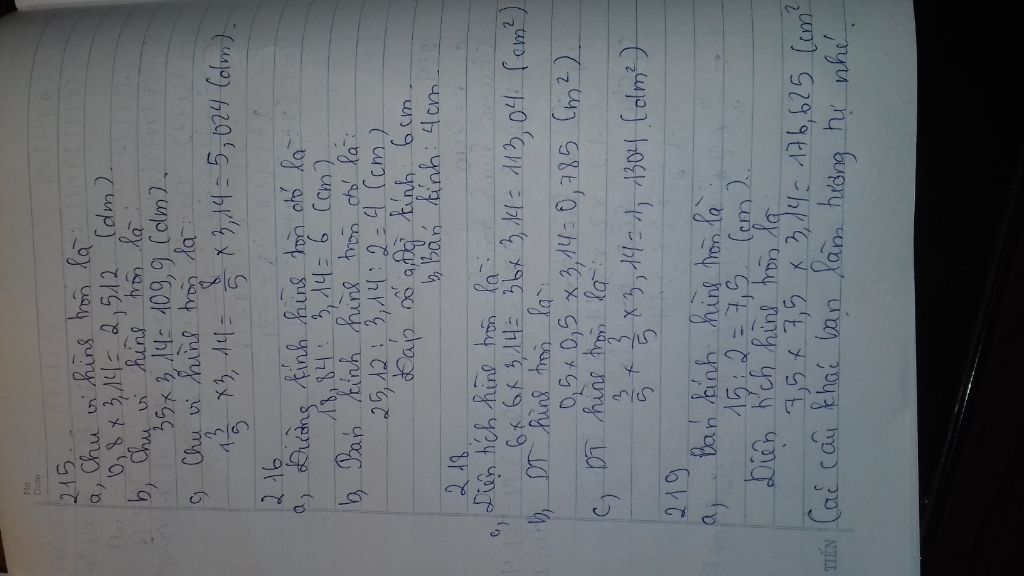 No.
Date
215.
a, Chu vi hình tròn là:
0,8 x 3,14 = 2,512 (dm).
b, Chu vi hình tròn là:
35 x 3,14 = 109,9 (dm).
c, Chu vi hình tròn là:
1 3/5 x 3,14 = 8/5 x 3,14 = 5,024 (dm).
216
a, Đường kính hình tròn đó là:
18,84 : 3,14 = 6 (cm)
b, Bán kính hình tròn đó là:
25,12 : 3,14 : 2 = 4 (cm)
Đáp số a, kính: 6cm.
b, Bán kính: 4cm.
218
a, Diện tích hình tròn là:
6 x 6 x 3,14 = 36 x 3,14 = 113,04 (cm²)
b, DT hình tròn là:
0,5 x 0,5 x 3,14 = 0,785 (m²)
c, DT hình tròn là:
3/5 x 3/5 x 3,14 = 1,1304 (dm²)
219
a, Bán kính hình tròn là:
15 : 2 = 7,5 (cm).
Diện tích hình tròn là
7,5 x 7,5 x 3,14 = 176,625 (cm²
Các câu khác bạn làm tương tự nhé
TIẾN